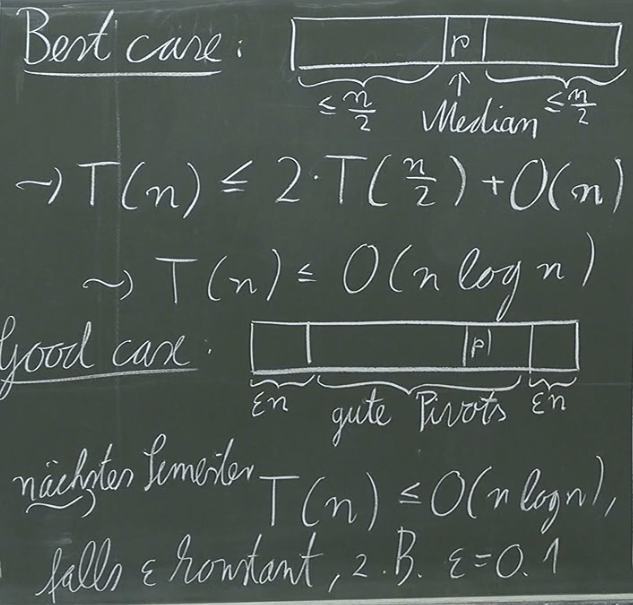 Best case: p
≤ n/2 ↑ ≤ n/2
Median
⤳ T(n) ≤ 2·T(n/2) + O(n)
⤳ T(n) ≤ O(n log n)
Good case: p
εn gute Pivots εn
nächstes Semester T(n) ≤ O(n log n),
falls ε konstant, z.B. ε=0.1